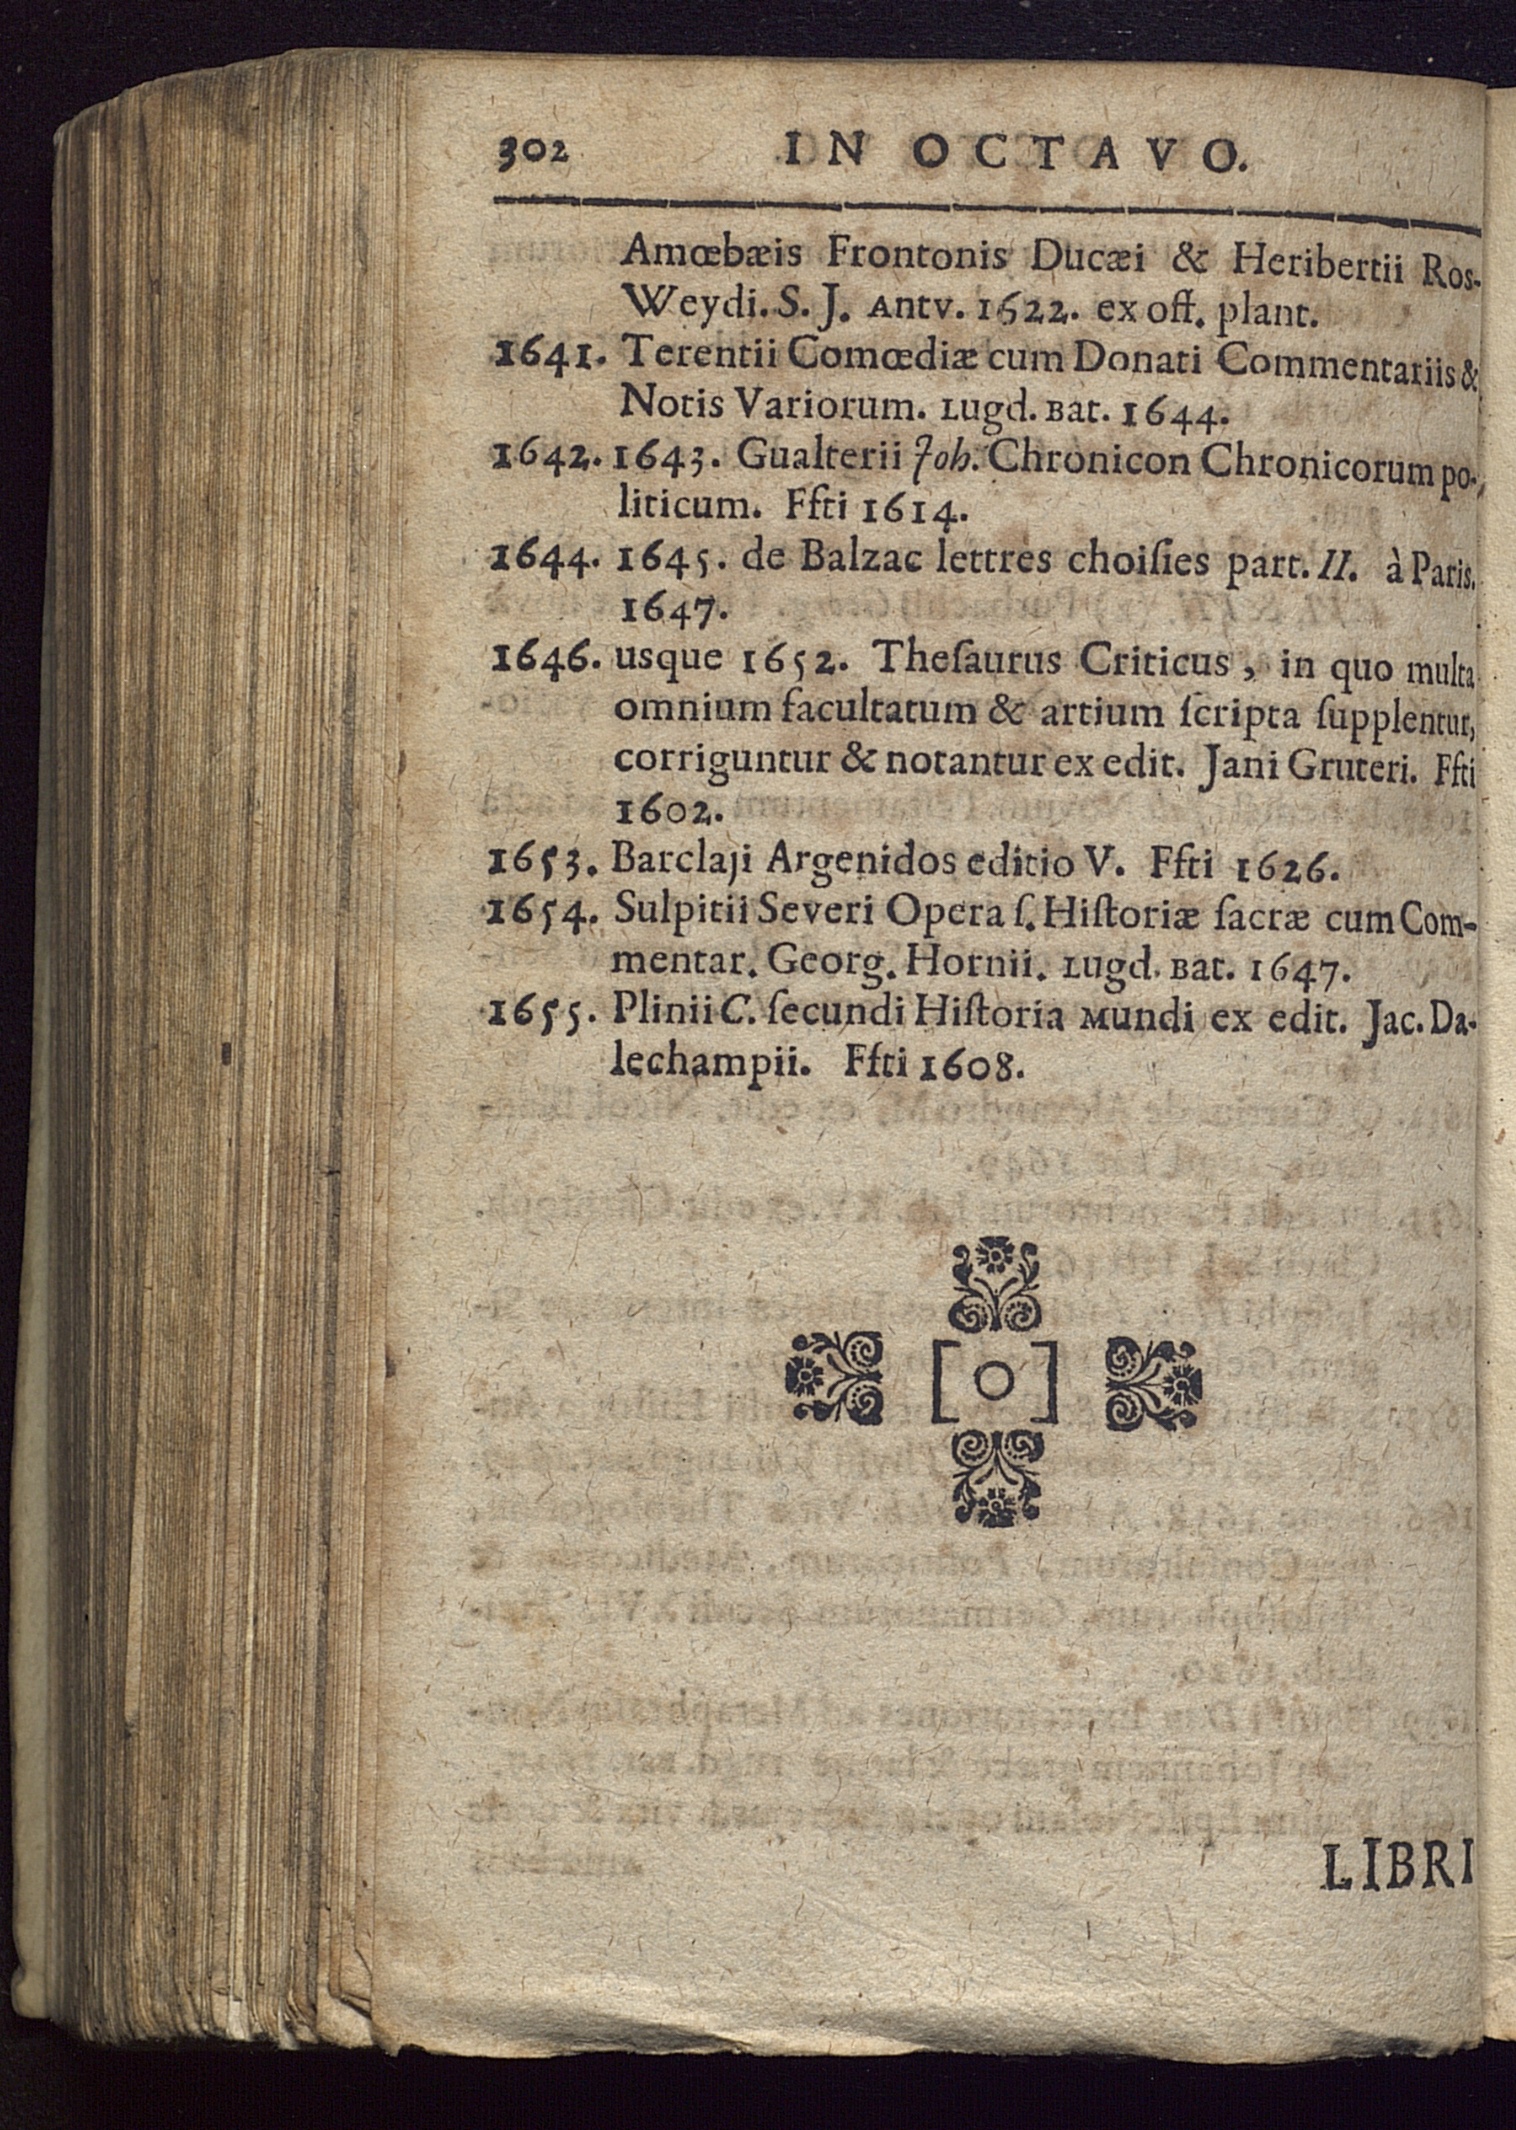 302 IN OCTAVO.
Amœbæis Frontonis Ducæi & Heribertii Ros-
Weydi. S. J. Antv. 1622. ex off. plant.
1641. Terentii Comœdiæ cum Donati Commentariis &
Notis Variorum. Lugd. Bat. 1644.
1642. 1643. Gualterii Joh. Chronicon Chronicorum po-
liticum. Ffti 1614.
1644. 1645. de Balzac lettres choiſies part. II. à Paris.
1647.
1646. usque 1652. Theſaurus Criticus, in quo multa
omnium facultatum & artium ſcripta ſupplentur,
corriguntur & notantur ex edit. Jani Gruteri. Ffti
1602.
1653. Barclaji Argenidos editio V. Ffti 1626.
1654. Sulpitii Severi Opera ſ. Hiſtoriæ ſacræ cum Com-
mentar. Georg. Hornii. Lugd. Bat. 1647.
1655. Plinii C. ſecundi Hiſtoria Mundi ex edit. Jac. Da-
lechampii. Ffti 1608.
[O]
LIBRI